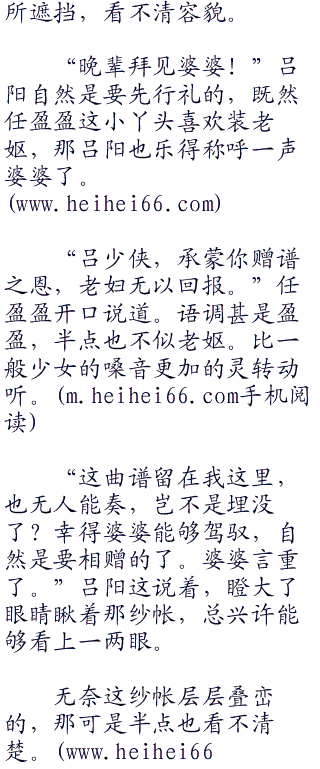 所遮挡，看不清容貌。
“晚辈拜见婆婆！”吕
阳自然是要先行礼的，既然
任盈盈这小丫头喜欢装老
妪，那吕阳也乐得称呼一声
婆婆了。
(www.heihei66.com)
“吕少侠，承蒙你赠谱
之恩，老妇无以回报。”任
盈盈开口说道。语调甚是盈
盈，半点也不似老妪。比一
般少女的嗓音更加的灵转动
听。(m.heihei66.com手机阅
读)
“这曲谱留在我这里，
也无人能奏，岂不是埋没
了？幸得婆婆能够驾驭，自
然是要相赠的了。婆婆言重
了。”吕阳这说着，瞪大了
眼睛瞅着那纱帐，总兴许能
够看上一两眼。
无奈这纱帐层层叠峦
的，那可是半点也看不清
楚。(www.heihei66